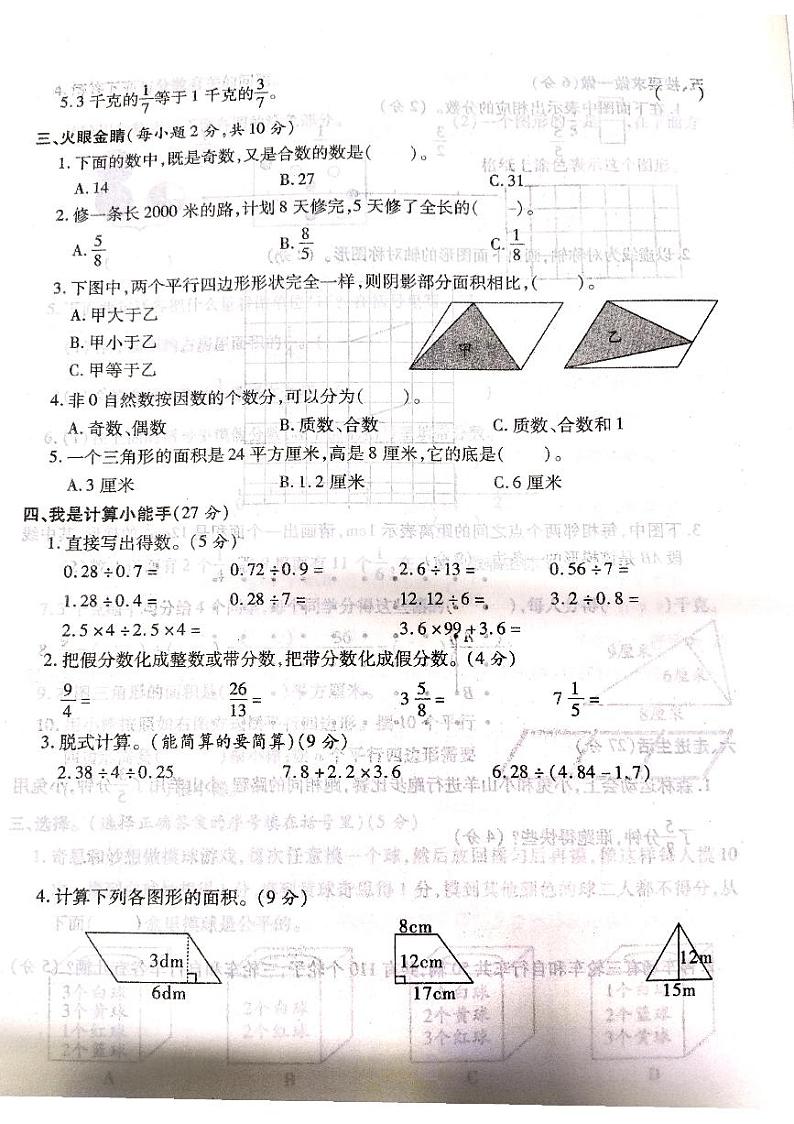 5. 3 千克的1/7等于 1 千克的3/7。 ( )
三、火眼金睛(每小题 2 分,共 10 分)
1. 下面的数中,既是奇数,又是合数的数是( )。
A. 14 B. 27 C. 31
2. 修一条长 2000 米的路,计划 8 天修完,5 天修了全长的( )。
A. 5/8 B. 8/5 C. 1/8
3. 下图中,两个平行四边形形状完全一样,则阴影部分面积相比,( )。
A. 甲大于乙
B. 甲小于乙
C. 甲等于乙
甲 乙
4. 非 0 自然数按因数的个数分,可以分为( )。
A. 奇数、偶数 B. 质数、合数 C. 质数、合数和 1
5. 一个三角形的面积是 24 平方厘米,高是 8 厘米,它的底是( )。
A. 3 厘米 B. 1.2 厘米 C. 6 厘米
四、我是计算小能手(27 分)
1. 直接写出得数。(5 分)
0.28÷0.7= 0.72÷0.9= 2.6÷13= 0.56÷7=
1.28÷0.4= 0.28÷7= 12.12÷6= 3.2÷0.8=
2.5×4÷2.5×4= 3.6×99+3.6=
2. 把假分数化成整数或带分数,把带分数化成假分数。(4 分)
9/4= 26/13= 3 5/8= 7 1/5=
3. 脱式计算。(能简算的要简算)(9 分)
2.38÷4÷0.25 7.8+2.2×3.6 6.28÷(4.84-1.7)
4. 计算下列各图形的面积。(9 分)
3dm
6dm
8cm
12cm
17cm
12m
15m